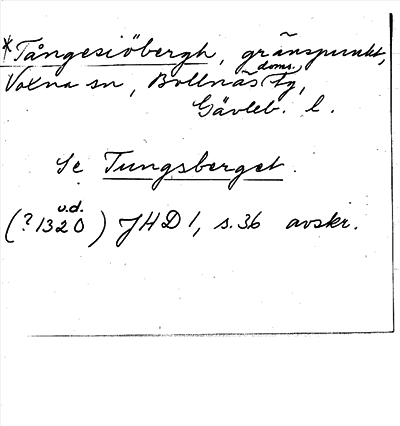 *Tångesiöbergh, gränspunkt,
Voxna sn, Bollnäs doms. tg,
Gävleb. l.
Se Tungsberget.
(? 1320 u.d.) JHD 1, s. 36 avskr.